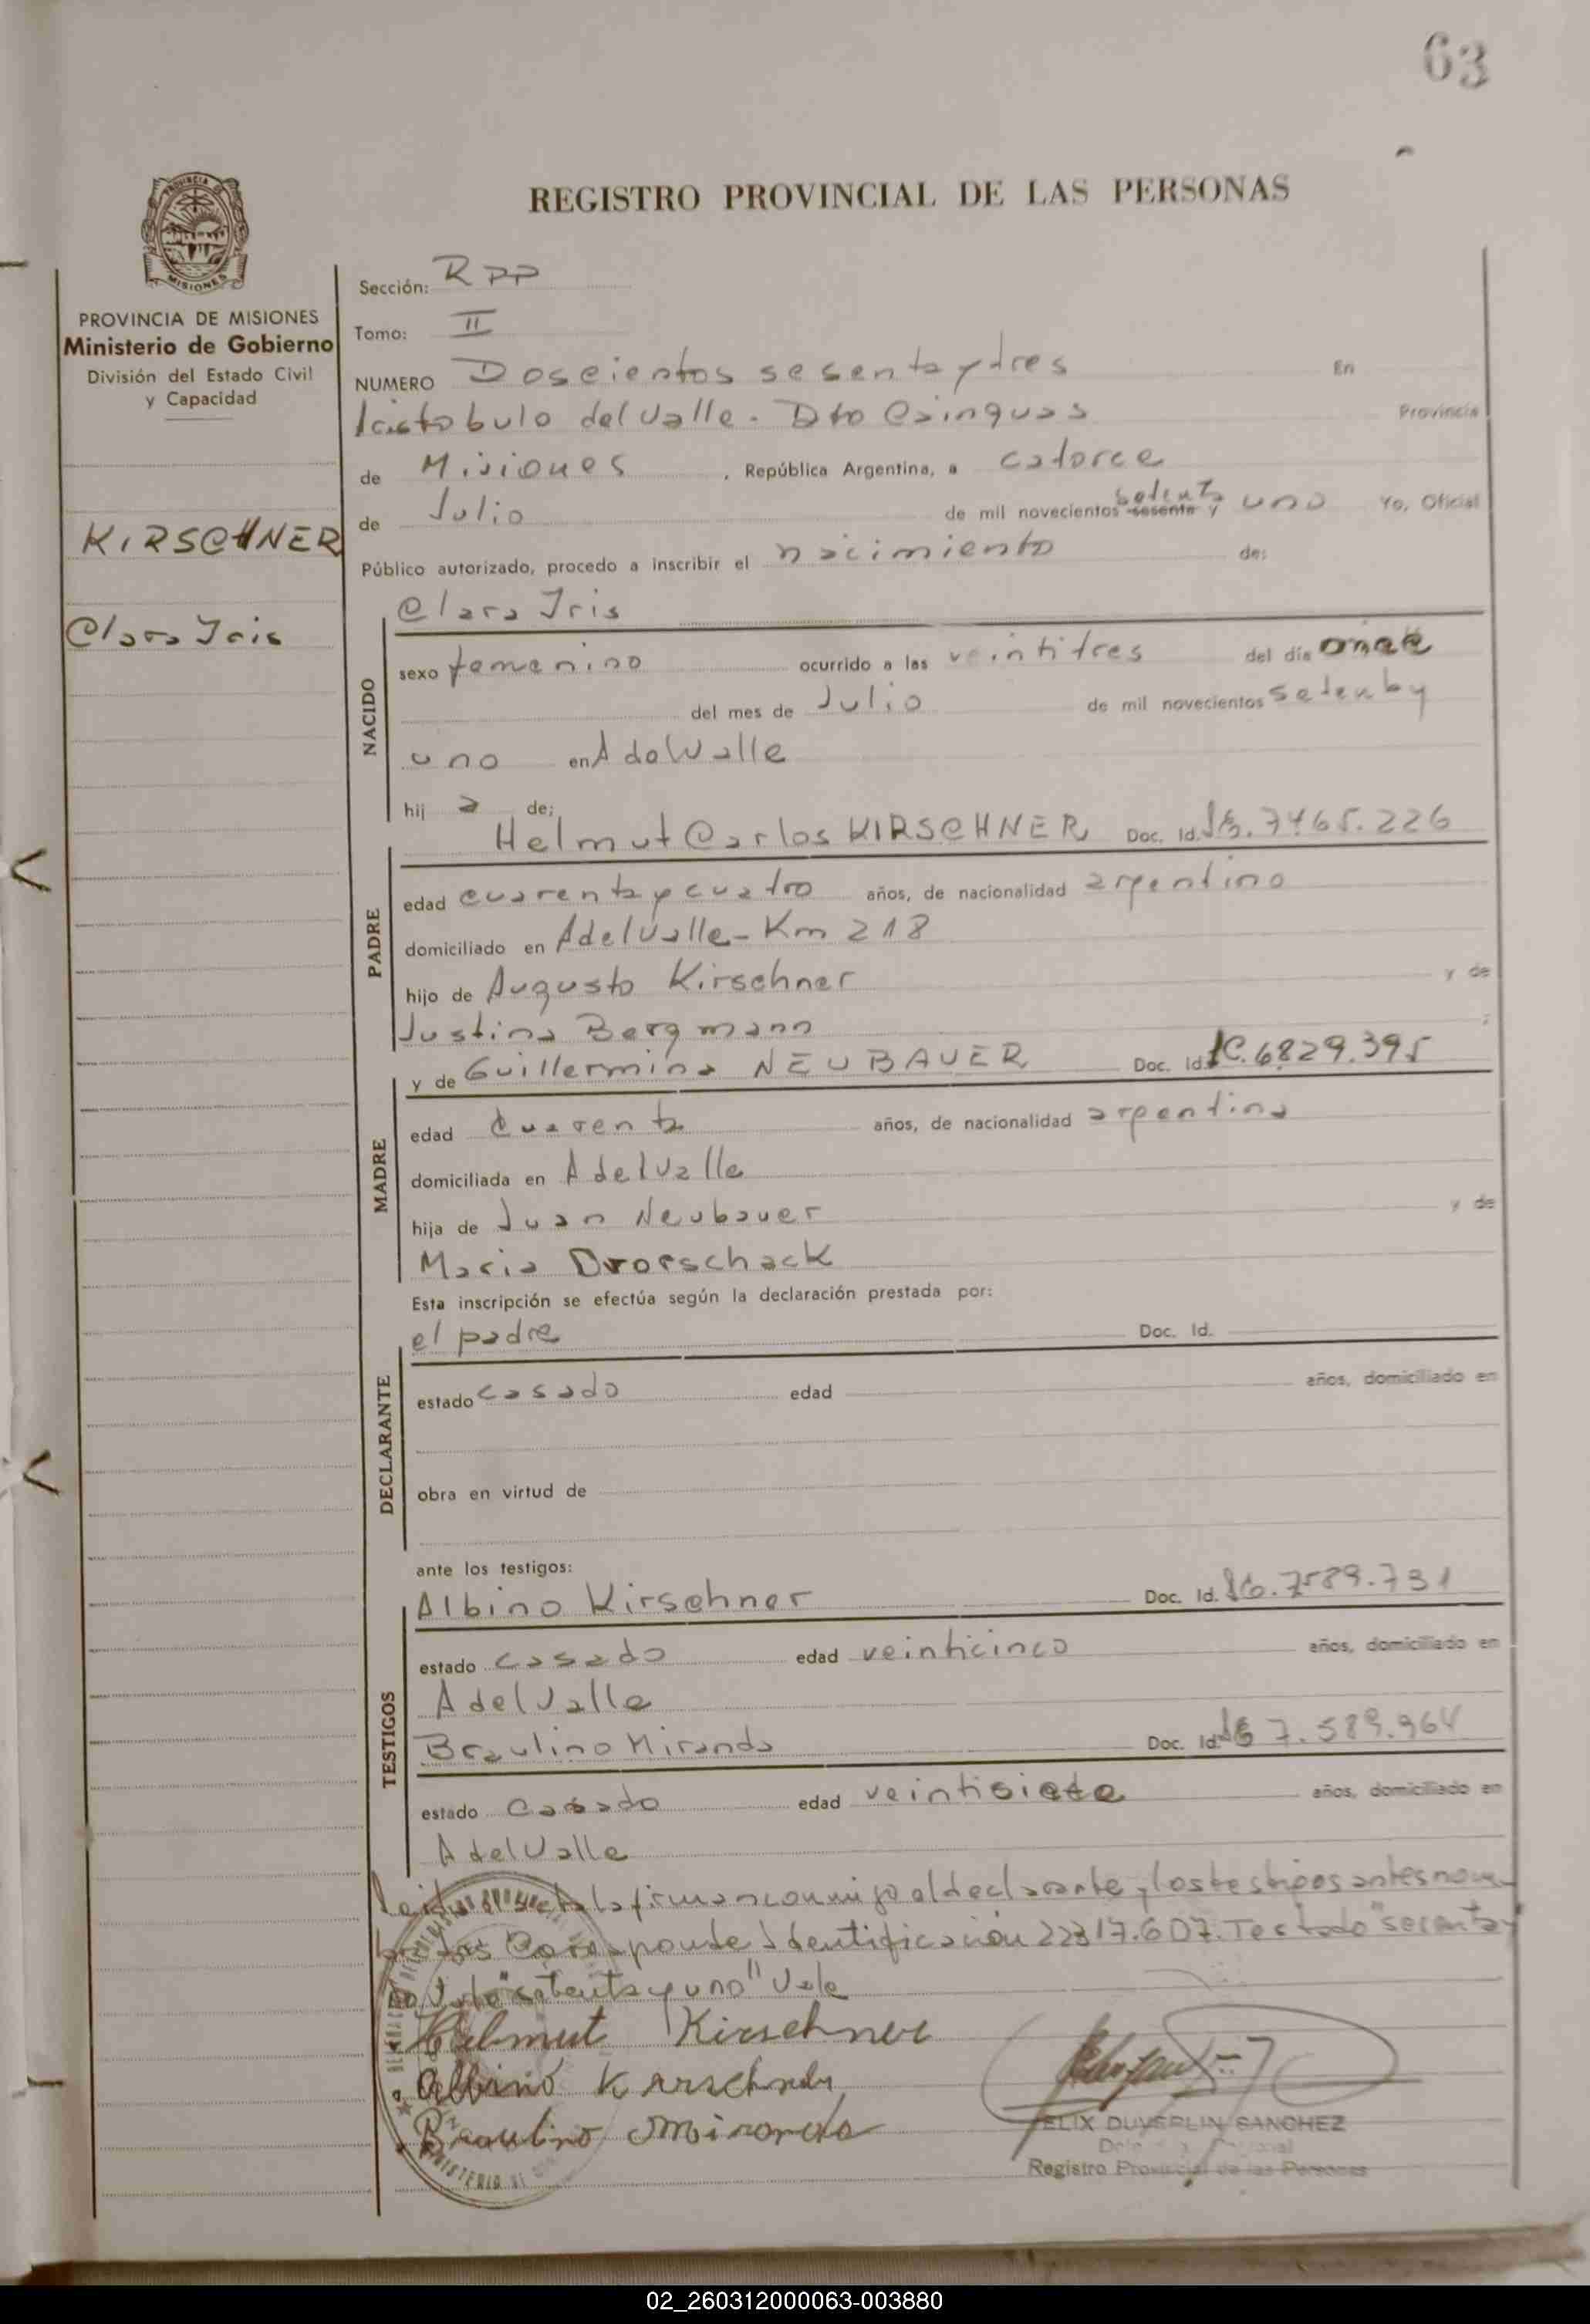 63
REGISTRO PROVINCIAL DE LAS PERSONAS
PROVINCIA DE MISIONES
Ministerio de Gobierno
División del Estado Civil
y Capacidad
KIRSCHNER
Clara Iris
Sección: RPP
Tomo: II
NUMERO Doscientos sesenta y tres En
Aristobulo del Valle - Dto Cainguas Provincia
de Misiones, República Argentina, a catorce
de Julio de mil novecientos sesenta y setenta uno Yo, Oficial
Público autorizado, procedo a inscribir el nacimiento de:
Clara Iris
NACIDO
sexo femenino ocurrido a las veintitres del día once
del mes de Julio de mil novecientos setenta y
uno en A del Valle
hij a de:
Helmut Carlos KIRSCHNER Doc. Id. 7465.226
PADRE
edad cuarenta y cuatro años, de nacionalidad argentino
domiciliado en A del Valle - Km 218
hijo de Augusto Kirschner y de
Justina Bergmann
y de Guillermina NEUBAUER Doc. Id. 6829.395
MADRE
edad Cuarenta años, de nacionalidad argentina
domiciliada en A del Valle
hija de Juan Neubauer y de
Maria
Esta inscripción se efectúa según la declaración prestada por:
el padre Doc. Id.
DECLARANTE
estado casado edad años, domiciliado en
obra en virtud de
ante los testigos:
Albino Kirschner Doc. Id. 7589.731
TESTIGOS
estado casado edad veinticinco años, domiciliado en
A del Valle
Braulino Miranda Doc. Id. 7.589.964
estado casado edad veintisiete años, domiciliado en
A del Valle
Leida el acta la firman conmigo el declarante y los testigos antes nom
brados Corresponde Identificación 22317.607. Testado "sesenta y
"setenta y uno" Vale
Helmut Kirschner
Albino Kirschner
Braulino Miranda
FELIX DUVERLIN SANCHEZ
Registro Provincial de las Personas
02_260312000063-003880